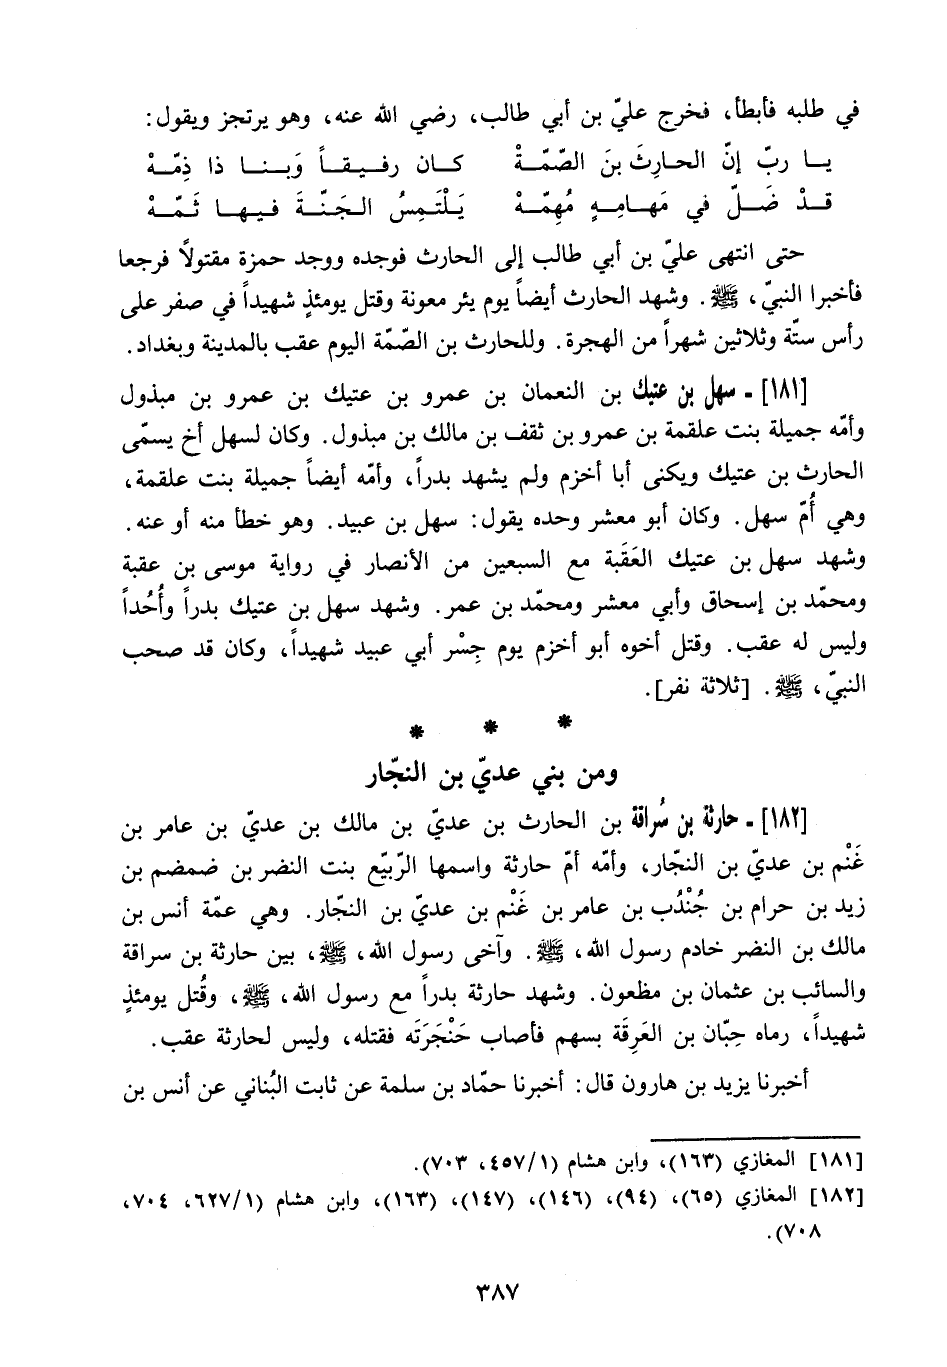 في طلبه فأبطأ، فخرج عليّ بن أبي طالب، رضي الله عنه، وهو يرتجز ويقول:
يـا ربّ إنّ الحارِثَ بنَ الصّمّةْ كـان رفـيـقـاً وَبـنـا ذا ذِمّـهْ
قـدْ ضَـلّ في مَهامِـهٍ مُهِمّـهْ يَلْتَمِسُ الجَنّـةَ فيـهـا ثَمّـهْ
حتى انتهى عليّ بن أبي طالب إلى الحارث فوجده ووجد حمزة مقتولاً فرجعا
فأخبرا النبيّ، ﷺ. وشهد الحارث أيضاً يوم بئر معونة وقتل يومئذٍ شهيداً في صفر على
رأس ستّة وثلاثين شهراً من الهجرة. وللحارث بن الصّمّة اليوم عقب بالمدينة وبغداد.
[١٨١] - سهل بن عتيك بن النعمان بن عمرو بن عتيك بن عمرو بن مبذول
وأمّه جميلة بنت علقمة بن عمرو بن ثقف بن مالك بن مبذول. وكان لسهل أخ يسمّى
الحارث بن عتيك ويكنى أبا أخزم ولم يشهد بدراً، وأمّه أيضاً جميلة بنت علقمة،
وهي أُمّ سهل. وكان أبو معشر وحده يقول: سهل بن عبيد. وهو خطأ منه أو عنه.
وشهد سهل بن عتيك العَقَبة مع السبعين من الأنصار في رواية موسى بن عقبة
ومحمّد بن إسحاق وأبي معشر ومحمّد بن عمر. وشهد سهل بن عتيك بدراً وأُحُداً
وليس له عقب. وقتل أخوه أبو أخزم يوم جِسْر أبي عبيد شهيداً، وكان قد صحب
النبيّ، ﷺ. [ثلاثة نفر].
* * *
ومن بني عديّ بن النجّار
[١٨٢] - حارثة بن سُراقة بن الحارث بن عديّ بن مالك بن عديّ بن عامر بن
غَنْم بن عديّ بن النجّار، وأمّه أمّ حارثة واسمها الرّبيّع بنت النضر بن ضمضم بن
زيد بن حرام بن جُنْدُب بن عامر بن غَنْم بن عديّ بن النجّار. وهي عمّة أنس بن
مالك بن النضر خادم رسول الله، ﷺ. وآخى رسول الله، ﷺ، بين حارثة بن سراقة
والسائب بن عثمان بن مظعون. وشهد حارثة بدراً مع رسول الله، ﷺ، وقُتل يومئذٍ
شهيداً، رماه حِبّان بن العَرِقَة بسهم فأصاب حَنْجَرَتَه فقتله، وليس لحارثة عقب.
أخبرنا يزيد بن هارون قال: أخبرنا حمّاد بن سلمة عن ثابت البُناني عن أنس بن
[١٨١] المغازي (١٦٣)، وابن هشام (١/ ٤٥٧، ٧٠٣).
[١٨٢] المغازي (٦٥)، (٩٤)، (١٤٦)، (١٤٧)، (١٦٣)، وابن هشام (١/ ٦٢٧، ٧٠٤،
٧٠٨).
٣٨٧